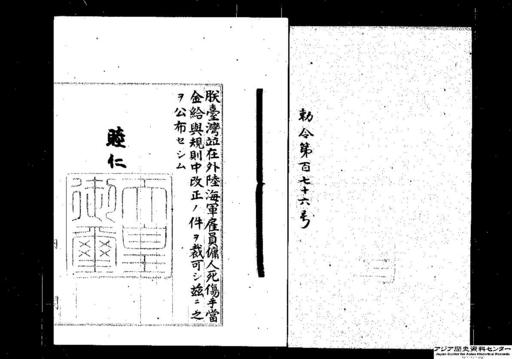 勅令第百七十六号
朕臺灣竝在外陸海軍雇員傭人死傷手當
金給與規則中改正ノ件ヲ裁可シ茲ニ之
ヲ公布セシム
睦仁
天皇
御璽
アジア歴史資料センター
Japan Center for Asian Historical Records